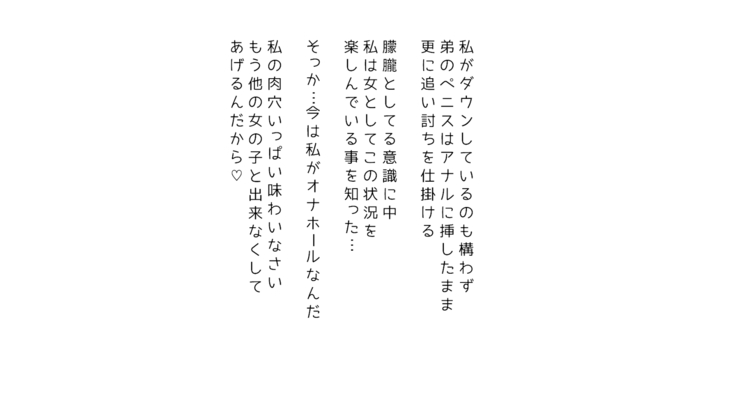 私がダウンしているのも構わず
弟のペニスはアナルに挿したまま
更に追い討ちを仕掛ける
朦朧としてる意識に中
私は女としてこの状況を
楽しんでいる事を知った…
そっか…今は私がオナホールなんだ
私の肉穴いっぱい味わいなさい
もう他の女の子と出来なくして
あげるんだから♡